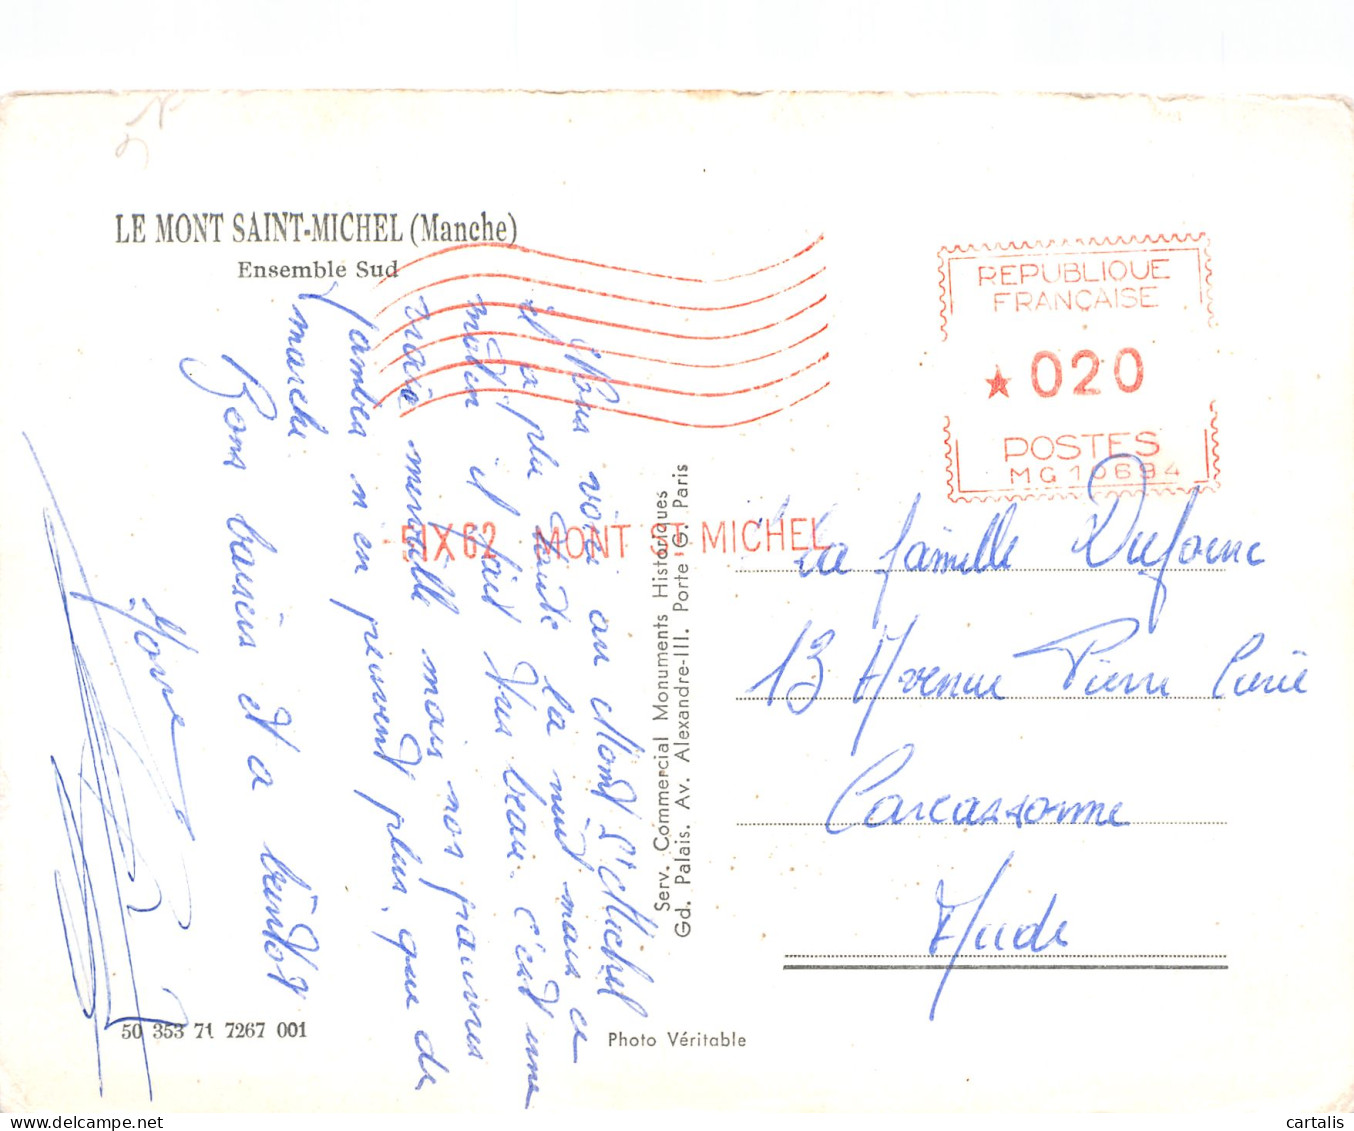 LE MONT SAINT-MICHEL (Manche)
Ensemble Sud
REPUBLIQUE
FRANÇAISE
★ 020
POSTES
MG 10694
-5 IX 62 MONT ST MICHEL
Nous voici au Mont St Michel
il a plu toute la nuit mais ce
matin il fait très beau. c'est une
vraie merveille mais nos pauvres
jambes n'en peuvent plus, que de
marche
Bons baisers et a bientot
La famille Dufour
13 Avenue Pierre Curie
Carcassonne
Aude
Serv. Commercial Monuments Historiques
Gd. Palais. Av. Alexandre-III. Porte G. Paris
50 353 71 7267 001
Photo Véritable
cartalis